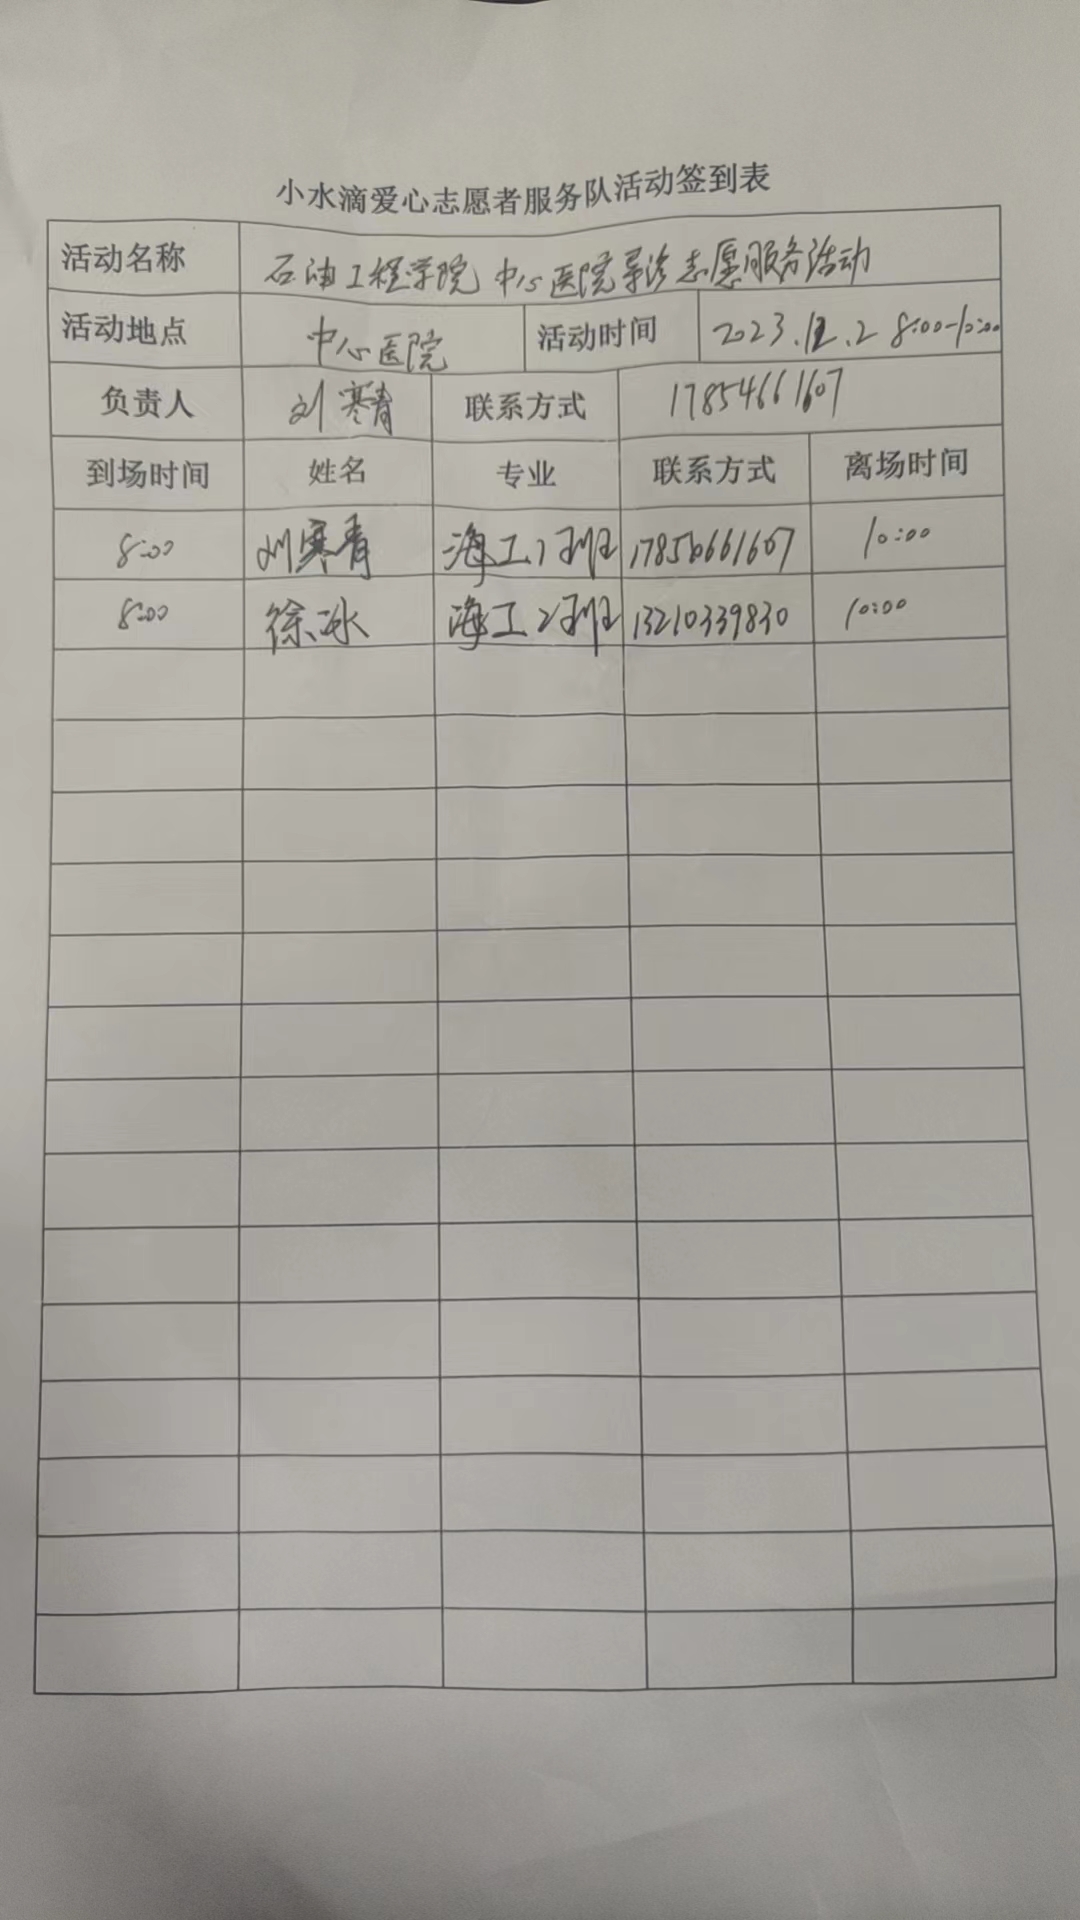 小水滴爱心志愿者服务队活动签到表
活动名称 石油工程学院中心医院导诊志愿服务活动
活动地点 中心医院 活动时间 2023.12.2 8:00-10:00
负责人 刘寒青 联系方式 17854661607
到场时间 姓名 专业 联系方式 离场时间
8:00 刘寒青 海工1班 17856661607 10:00
8:00 徐冰 海工2班 13210339830 10:00